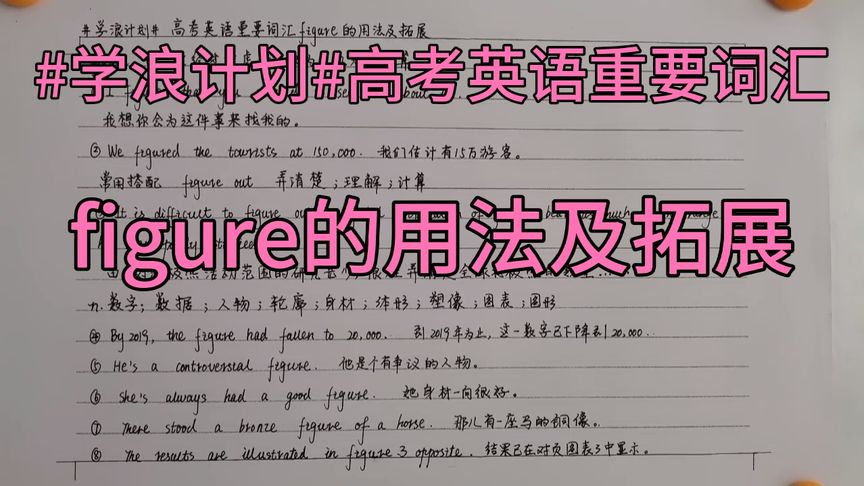 #学浪计划# 高考英语重要词汇figure的用法及拓展
#学浪计划#高考英语重要词汇
我想你会为这件事来找我的。
③ We figured the tourists at 150,000. 我们估计有15万游客。
常用搭配 figure out 弄清楚;理解;计算
It is difficult to figure out
figure的用法及拓展
n.数字;数据;人物;轮廓;身材;体形;塑像;图表;图形
④ By 2019, the figure had fallen to 20,000. 到2019年为止,这一数字已下降到20,000.
⑤ He's a controversial figure. 他是个有争议的人物。
⑥ She's always had a good figure. 她身材一向很好。
⑦ There stood a bronze figure of a horse. 那儿有一座马的铜像。
⑧ The results are illustrated in figure 3 opposite. 结果已在对页图表3中显示。